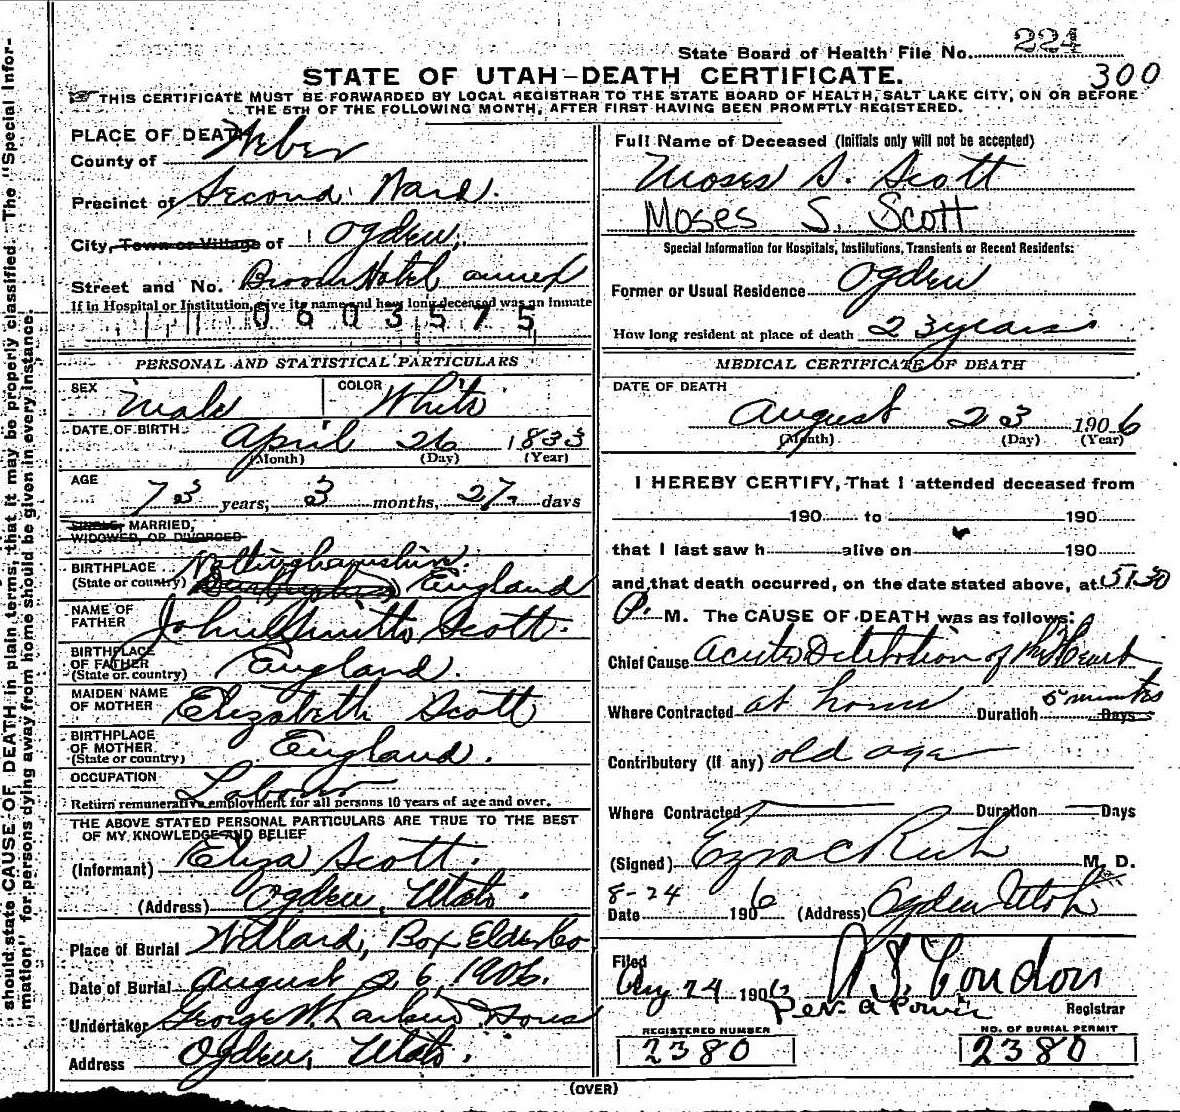 State Board of Health File No. 224
STATE OF UTAH—DEATH CERTIFICATE. 300
THIS CERTIFICATE MUST BE FORWARDED BY LOCAL REGISTRAR TO THE STATE BOARD OF HEALTH, SALT LAKE CITY, ON OR BEFORE
THE 5TH OF THE FOLLOWING MONTH, AFTER FIRST HAVING BEEN PROMPTLY REGISTERED.
should state CAUSE OF DEATH in plain terms, that it may be properly classified. The "Special Infor-
mation" for persons dying away from home should be given in every instance.
PLACE OF DEATH
County of Weber
Precinct of Second Ward.
City, Town or Village of Ogden,
Street and No. Broom Hotel annex
If in Hospital or Institution, give its name and how long deceased was an Inmate
0603575
PERSONAL AND STATISTICAL PARTICULARS
SEX Male COLOR White
DATE OF BIRTH April 26 1833
(Month) (Day) (Year)
AGE 73 years; 3 months, 27 days
SINGLE, MARRIED,
WIDOWED, OR DIVORCED
BIRTHPLACE Nottinghamshire.
(State or country) England
NAME OF
FATHER John Scott.
BIRTHPLACE
OF FATHER England.
(State or country)
MAIDEN NAME
OF MOTHER Elizabeth Scott
BIRTHPLACE
OF MOTHER England.
(State or country)
OCCUPATION Labour
Return remunerative employment for all persons 10 years of age and over.
THE ABOVE STATED PERSONAL PARTICULARS ARE TRUE TO THE BEST
OF MY KNOWLEDGE AND BELIEF
(Informant) Eliza Scott.
(Address) Ogden, Utah.
Place of Burial Willard, Box Elder Co
Date of Burial August 26, 1906.
Undertaker George W. Larkin & Sons
Address Ogden, Utah.
Full Name of Deceased (Initials only will not be accepted)
Moses S. Scott
Moses S. Scott
Special Information for Hospitals, Institutions, Transients or Recent Residents:
Former or Usual Residence Ogden
How long resident at place of death 23 years
MEDICAL CERTIFICATE OF DEATH
DATE OF DEATH
August 23 1906
(Month) (Day) (Year)
I HEREBY CERTIFY, That I attended deceased from
190 to 190
that I last saw h alive on 190
and that death occurred, on the date stated above, at 5:30
P. M. The CAUSE OF DEATH was as follows:
Chief Cause Acute of the Heart
Where Contracted at home Duration 5 minutes Days
Contributory (if any) old age
Where Contracted Duration Days
(Signed) Ezra C Rich M. D.
8-24
Date 1906 (Address) Ogden Utah
Filed
Aug 24 1906 Condon
Per. a Power Registrar
REGISTERED NUMBER
2380
NO. OF BURIAL PERMIT
2380
(OVER)